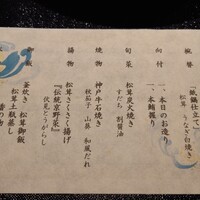 風替
「紙鍋仕立て」
松茸 うなぎ白焼き
向付
一、本日のお造り
一、本鮪握り
旬菜
松茸炭火焼き
すだち 割醤油
焼物
神戸牛石焼き
祝茄子 山葵 和風だれ
揚物
松茸さくさく揚げ
『伝統京野菜』
伏見とうがらし
御飯
釜炊き 松茸御飯
松茸土瓶蒸し
香の物